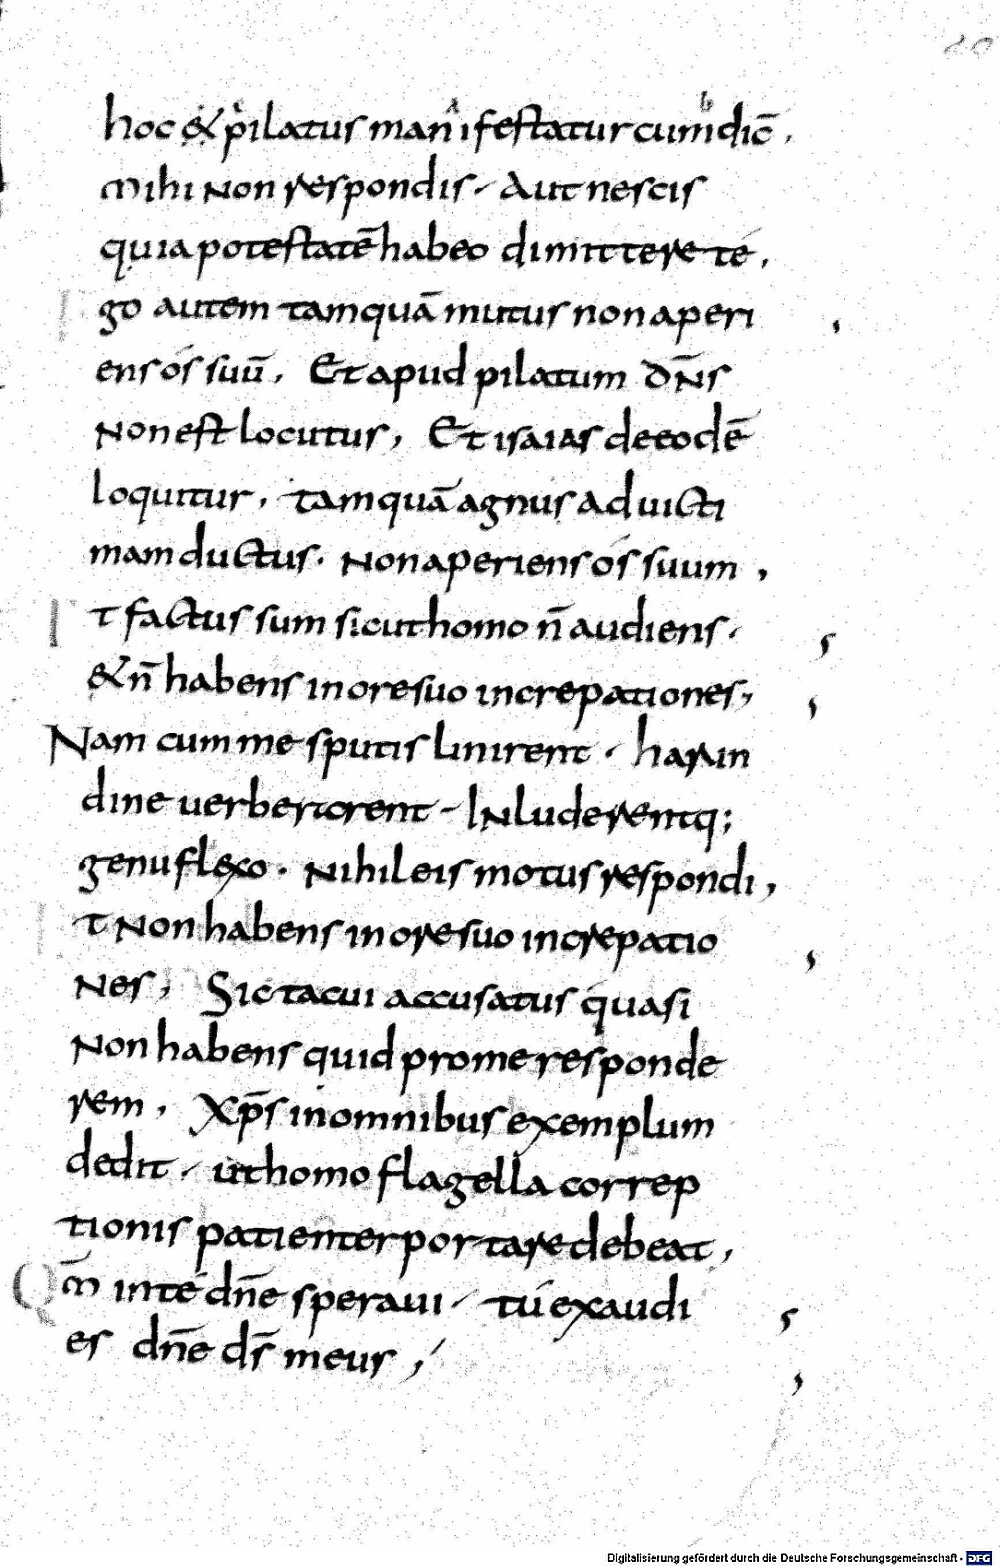 hoc & pilatus manifestatur cum dic̄.
mihi non respondis. Aut nescis
quia potestatē habeo dimittere te,
go autem tamquā mutus non aperi
ens os suū, Et apud pilatum dn̄s
non est locutus, Et isaias de eodē
loquitur, tamquā agnus ad uicti
mam ductus. non aperiens os suum,
t factus sum sicut homo n̄ audiens.
& n̄ habens in ore suo increpationes,
Nam cum me sputis linirent. harun
dine uerberarent. Inluderentq;
genu flexo. nihil eis motus respondi,
t non habens in ore suo increpatio
nes, Sic tacui accusatus quasi
non habens quid pro me responde
rem, Xp̄s in omnibus exemplum
dedit. ut homo flagella correp
tionis patienter portare debeat,
Qm̄ in te dn̄e speraui. tu exaudi
es dn̄e ds̄ meus,
Digitalisierung gefördert durch die Deutsche Forschungsgemeinschaft - DFG